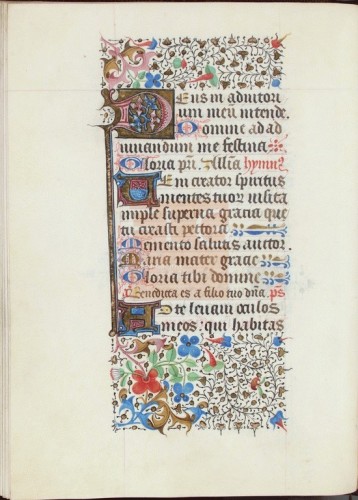 Deus in adiutori
um meu intende.
Domine ad ad
iuuandum me festina
Gloria pri. Allia hymn9
Veni creator spiritus
mentes tuor uisita
imple superna gracia que
tu creasti pectora
Memento salutis auctor.
Maria mater gracie
Gloria tibi domine
Benedicta es a filio tuo dna. ps
Ad te leuaui oculos
meos: qui habitas